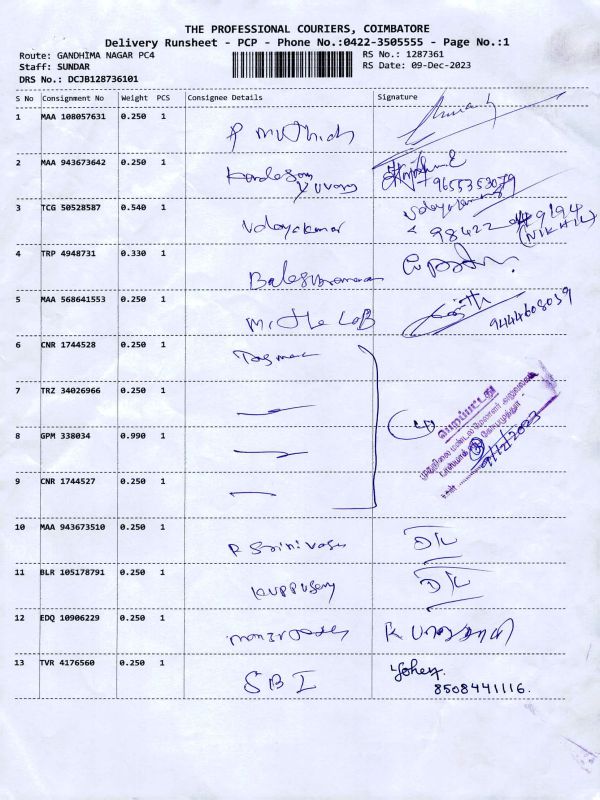 THE PROFESSIONAL COURIERS, COIMBATORE
Delivery Runsheet - PCP - Phone No.:0422-3505555 - Page No.:1
Route: GANDHIMA NAGAR PC4
RS No.: 1287361
Staff: SUNDAR
RS Date: 09-Dec-2023
DRS No.: DCJB128736101
S No Consignment No Weight PCS Consignee Details Signature
1 MAA 108057631 0.250 1
2 MAA 943673642 0.250 1 Yuvaraj 9655353079
3 TCG 50528587 0.540 1 Udayakumar Udayakumar
98422 (NIKHIL)
4 TRP 4948731 0.330 1 Balasubramanian
5 MAA 568641553 0.250 1 LAB 9444608059
6 CNR 1744528 0.250 1 Tasmac
7 TRZ 34026966 0.250 1
8 GPM 338034 0.990 1
பெறப்பட்டது
9/12/2023
9 CNR 1744527 0.250 1
10 MAA 943673510 0.250 1 R Srinivasan D/L
11 BLR 105178791 0.250 1 Kuppusamy D/L
12 EDQ 10906229 0.250 1
13 TVR 4176560 0.250 1 SBI
8508441116.